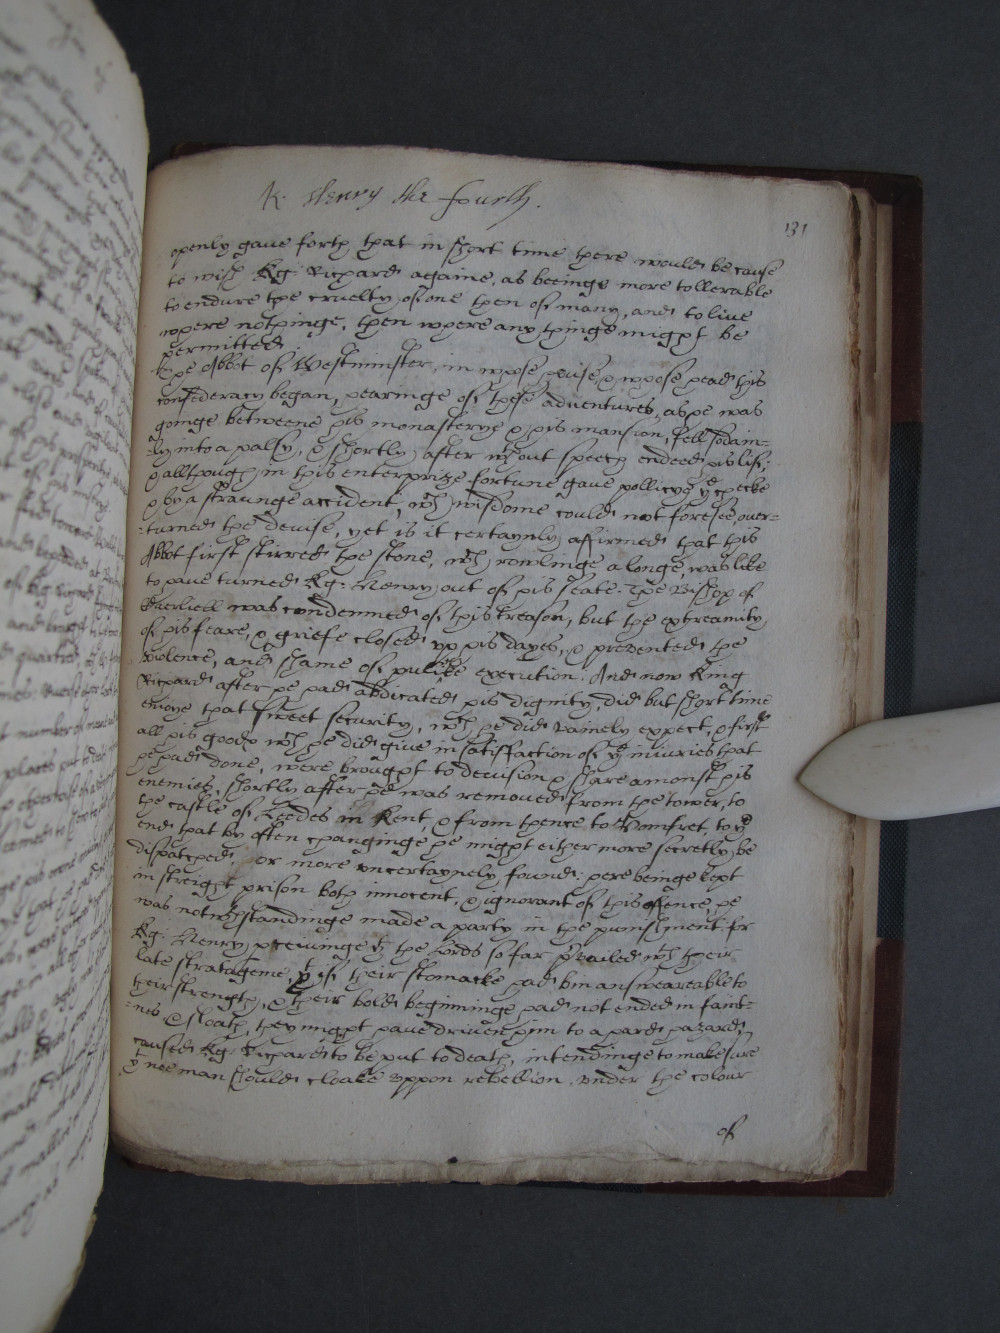 K. Henry the fourth.
131
openly gaue forth that in short time there would be cause
to wish Kg: Richard againe, as beeinge more tollerable
to endure the cruelty of one then of many, and to liue
where nothinge, then where any thinge might be
permitted.
The Abbot of Westminster, in whose house & whose head this
confederacy began, hearinge of these aduentures, as he was
goinge betweene his monasterye & his mansion, fell sodain-
-ly into a palsy, & shortly after wthout speech ended his life;
& allthough in this enterprize fortune gaue pollicye ye checke
& by a straunge accident, wch wisdome could not foresee, ouer-
-turned the deuise, yet is it certaynly affirmed that this
Abbot first stirred the stone, wch rowlinge alonge, was like
to haue turned Kg: Henry out of his seate. The Bishop of
Caerliell was condemned of this treason, but the extreamity
of his feare, & griefe closed vp his dayes, & preuented the
violence, and shame of publike execution. And now King
Richard after he had abdicated his dignity, did but short time
enioye that sweet security, wch he did vainely expect, & first
all his goods wch he did giue in satisfaction of ye iniuries that
he had done, were brought to deuision & share amonst his
enemies, shortly after he was remoued from the tower, to
the castle of Leedes in Kent, & from thence to Pomfret, to ye
end that by often changinge he might either more secretly be
dispatched, or more vncertaynely found: here beinge kept
in streight prison both innocent, & ignorant of this offence, he
was notwthstandinge made a party in the punishment: for
Kg: Henry perceiuinge yt the Lords so far preuailed wth their
late stratageme, yt if their stomacke had bin answeareable to
their strength, & their bold beginninge had not ended in faint-
-nes & sloath, they might haue driuen him to a hard hazard,
caused Kg: Richard to be put to death, intendinge to make sure
yt noe man should cloake vppon rebellion vnder the colour
of